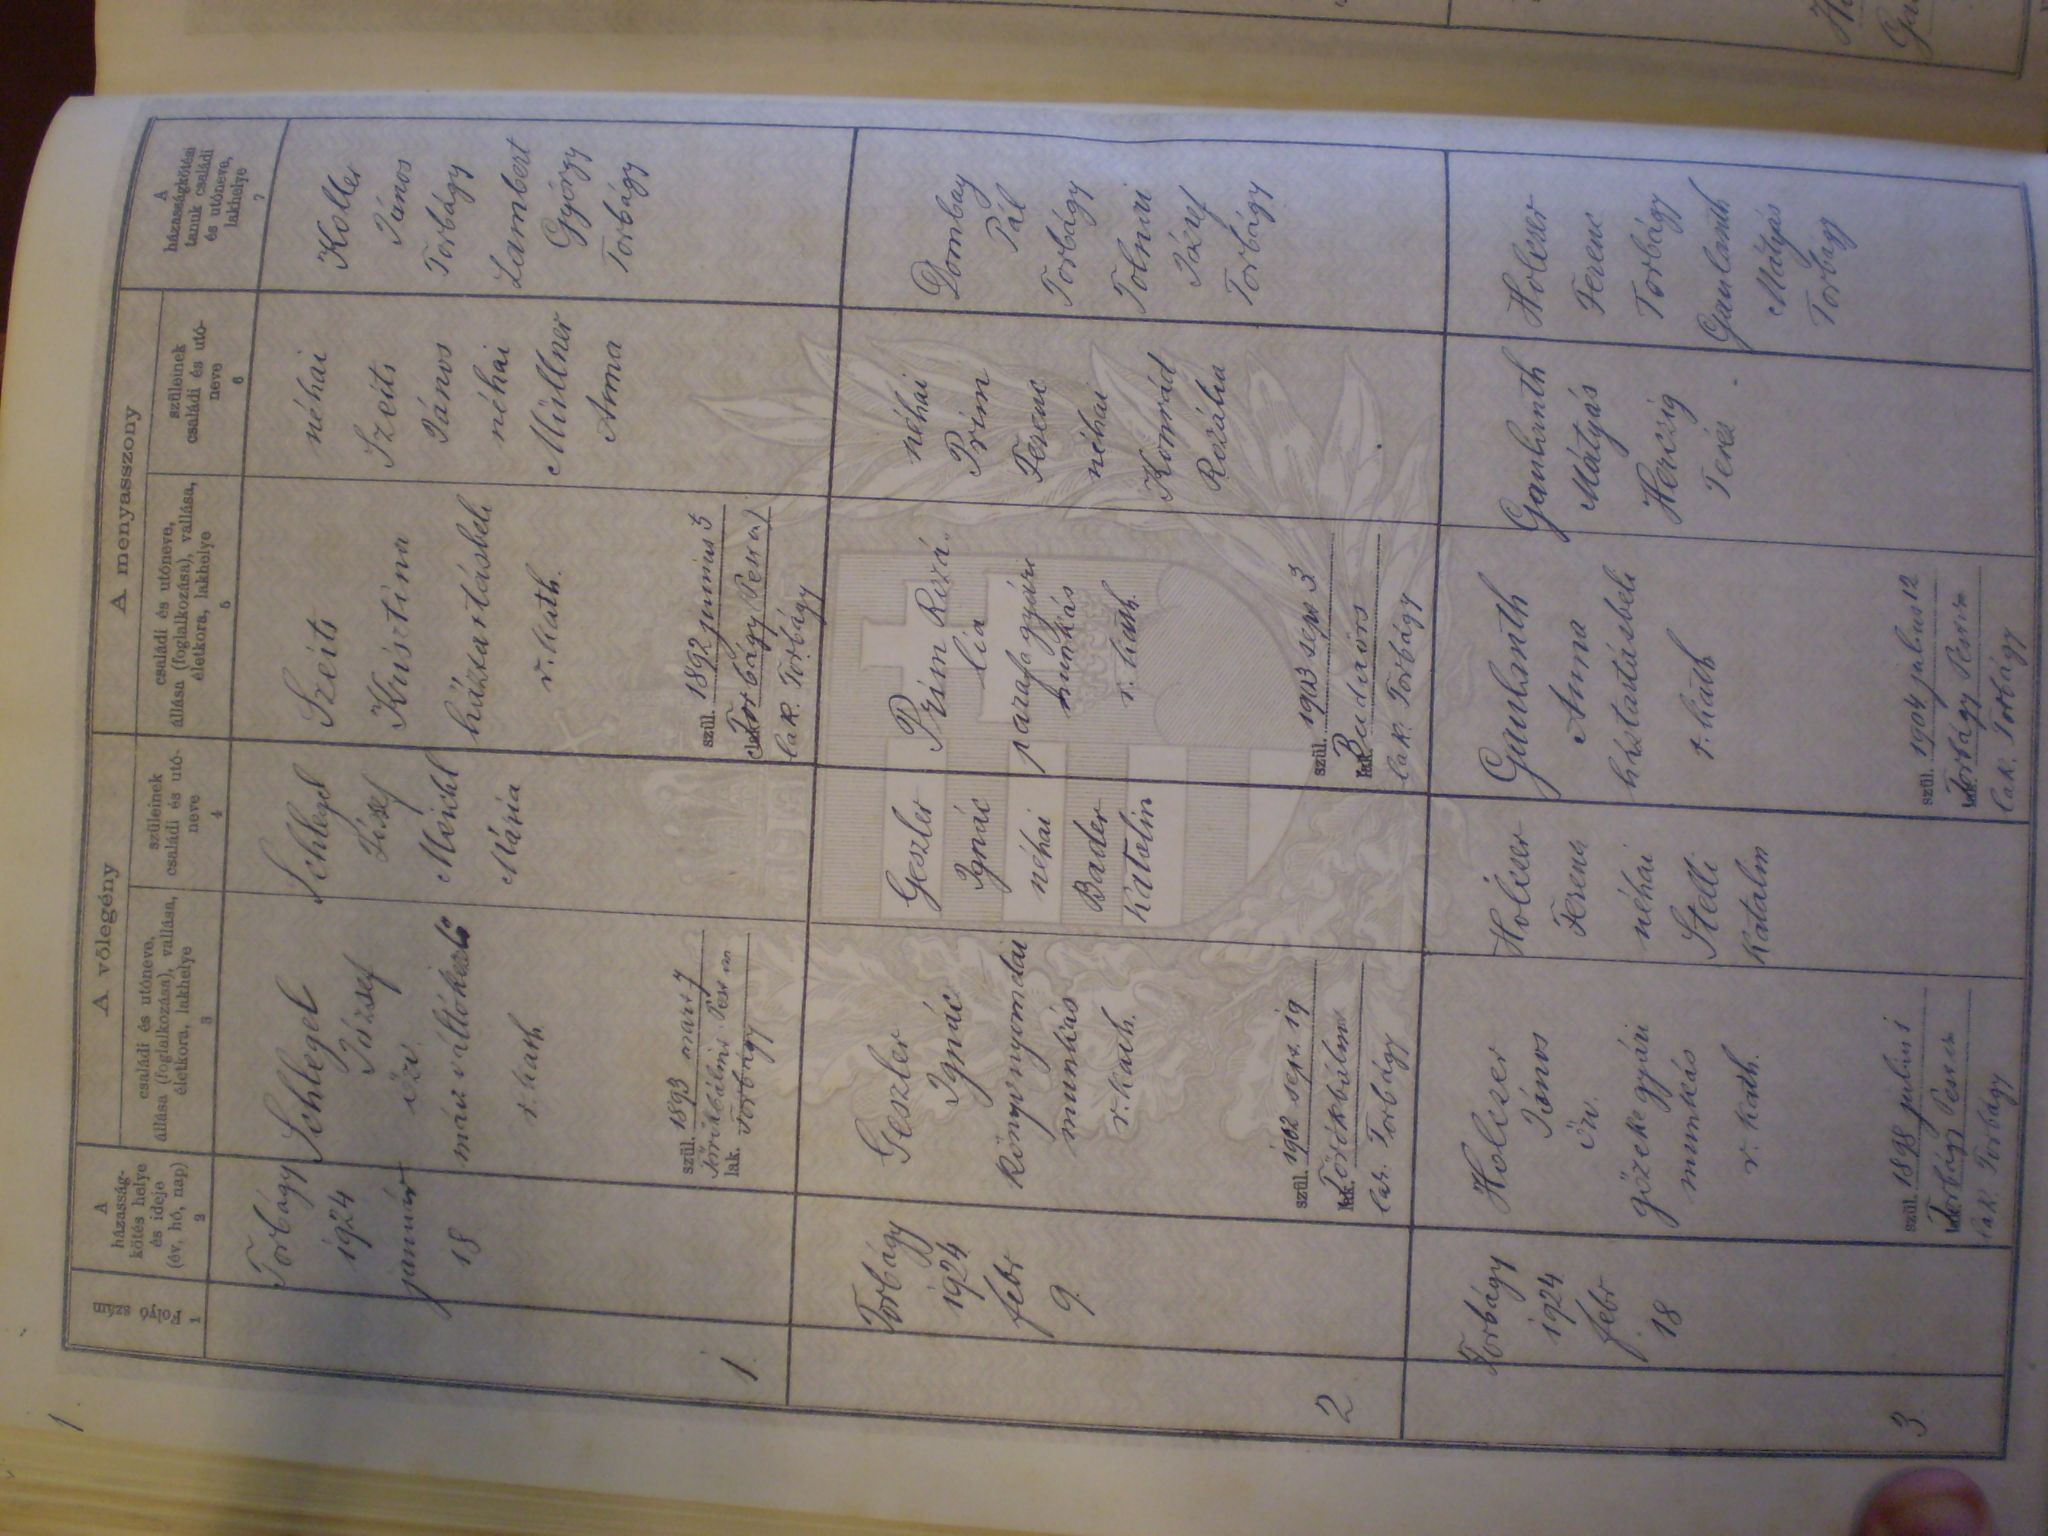 1
A vőlegény
A menyasszony
Folyó szám
1
A
házasság-
kötés helye
és ideje
(év, hó, nap)
2
családi és utóneve,
állása (foglalkozása), vallása,
életkora, lakhelye
3
szüleinek
családi és utó-
neve
4
családi és utóneve,
állása (foglalkozása), vallása,
életkora, lakhelye
5
szüleinek
családi és utó-
neve
6
A
házasságkötési
tanuk családi
és utóneve,
lakhelye
7
1.
Torbágy
1924
január
18
Schlegel
József
máv váltókezelő
r. kath.
szül. 1893 márt 7
Törökbálint Pest m
lak. Torbágy
Schlegel
József
Mária
Szeits
Krisztina
háztartásbeli
r. kath.
szül. 1892 junius 5
Torbágy Pest m
lak. Torbágy
néhai
Szeits
János
néhai
Müllner
Anna
Koller
János
Torbágy
Lambert
György
Torbágy
2
Torbágy
1924
febr
9.
Geszler
Ignác
könyvnyomdai
munkás
r. kath.
szül. 1902 sept. 19
lak. Törökbálint
lak. Torbágy
Geszler
Ignác
néhai
Bader
Katalin
Prim Rozá-
lia
parafagyári
munkás
r. kath.
szül. 1903 sept 3
lak. Budaörs
lak. Torbágy
néhai
Prim
Ferenc
néhai
Konrád
Rozália
Dombay
Pál
Torbágy
Tolnai
József
Torbágy
3
Torbágy
1924
febr
18
Holcser
János
öv.
gőzekegyári
munkás
r. kath.
szül. 1898 julius 1
lak. Torbágy Pest m
lak. Torbágy
Holcser
Ferenc
néhai
Stelli
Katalin
Gaulanth
Anna
háztartásbeli
r. kath
szül. 1904 julius 12
lak. Torbágy Pest m
lak. Torbágy
Gaulanth
Mátyás
Herczig
Teréz
Holcser
Ferenc
Torbágy
Gaulanth
Mátyás
Torbágy